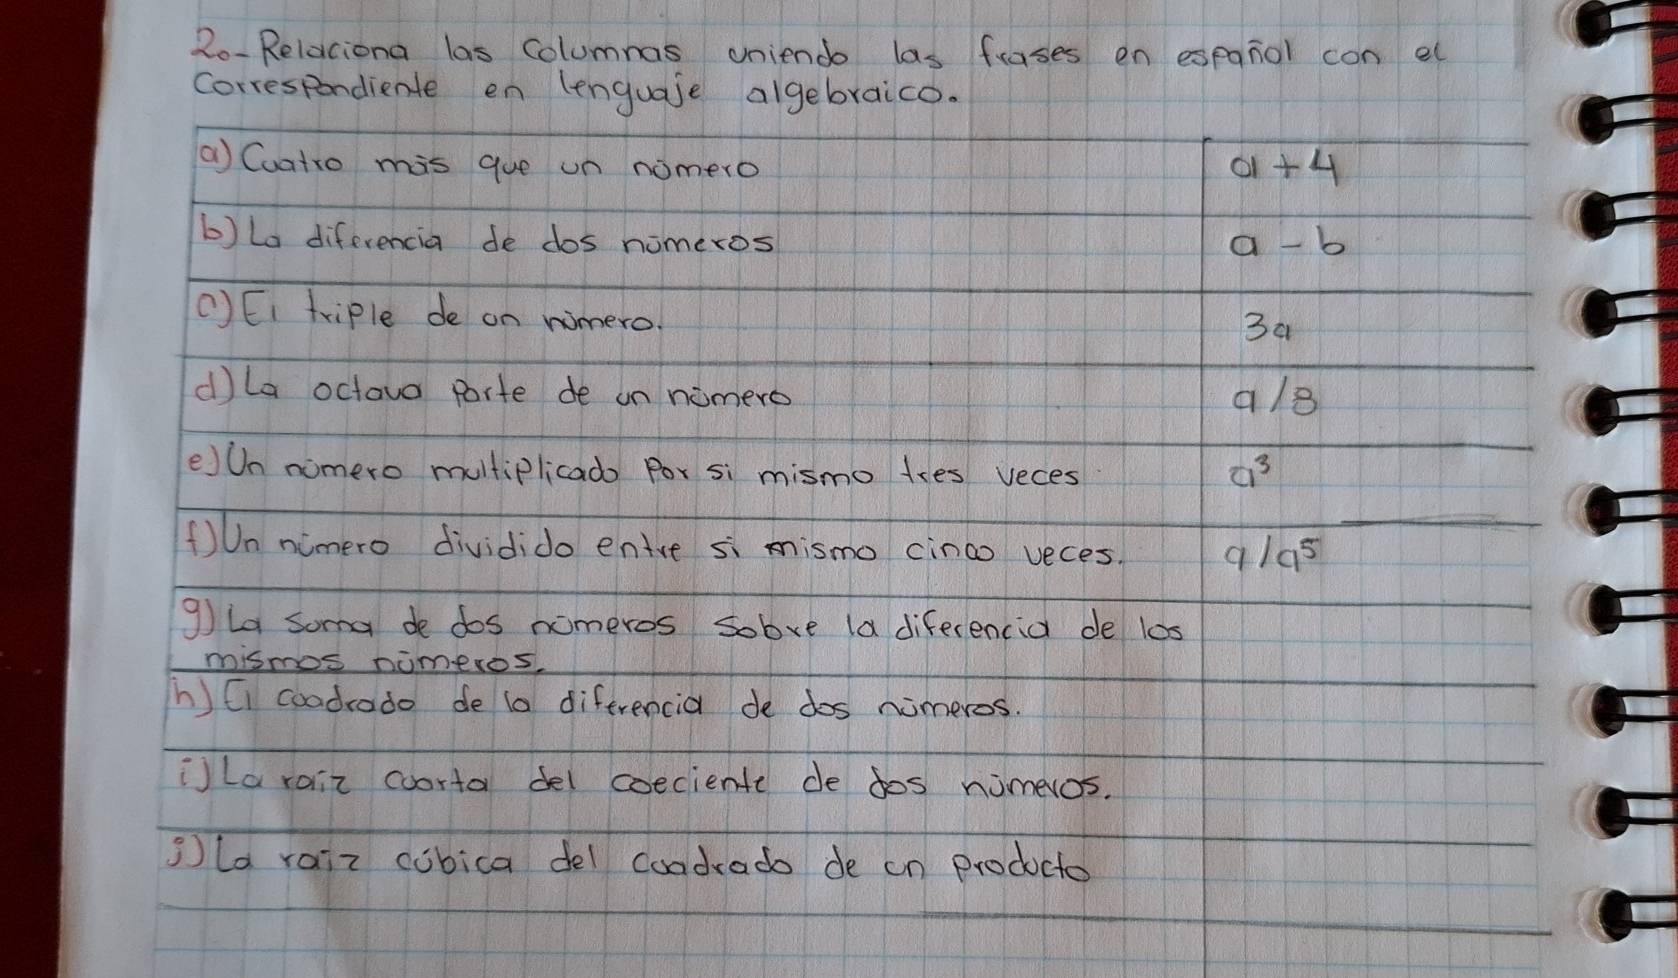 2.- Relaciona las columnas uniendo las frases en español con el
correspondiente en lenguaje algebraico.
a) Cuatro más que un número a + 4
b) La diferencia de dos números a - b
c) El triple de un número. 3a
d) La octava parte de un número a/8
e) Un número multiplicado por si mismo tres veces a³
f) Un número dividido entre si mismo cinco veces. a/a⁵
g) La suma de dos números sobre la diferencia de los
mismos números.
h) El cuadrado de la diferencia de dos números.
i) La raiz cuarta del coeciente de dos números.
j) La raiz cúbica del cuadrado de un producto